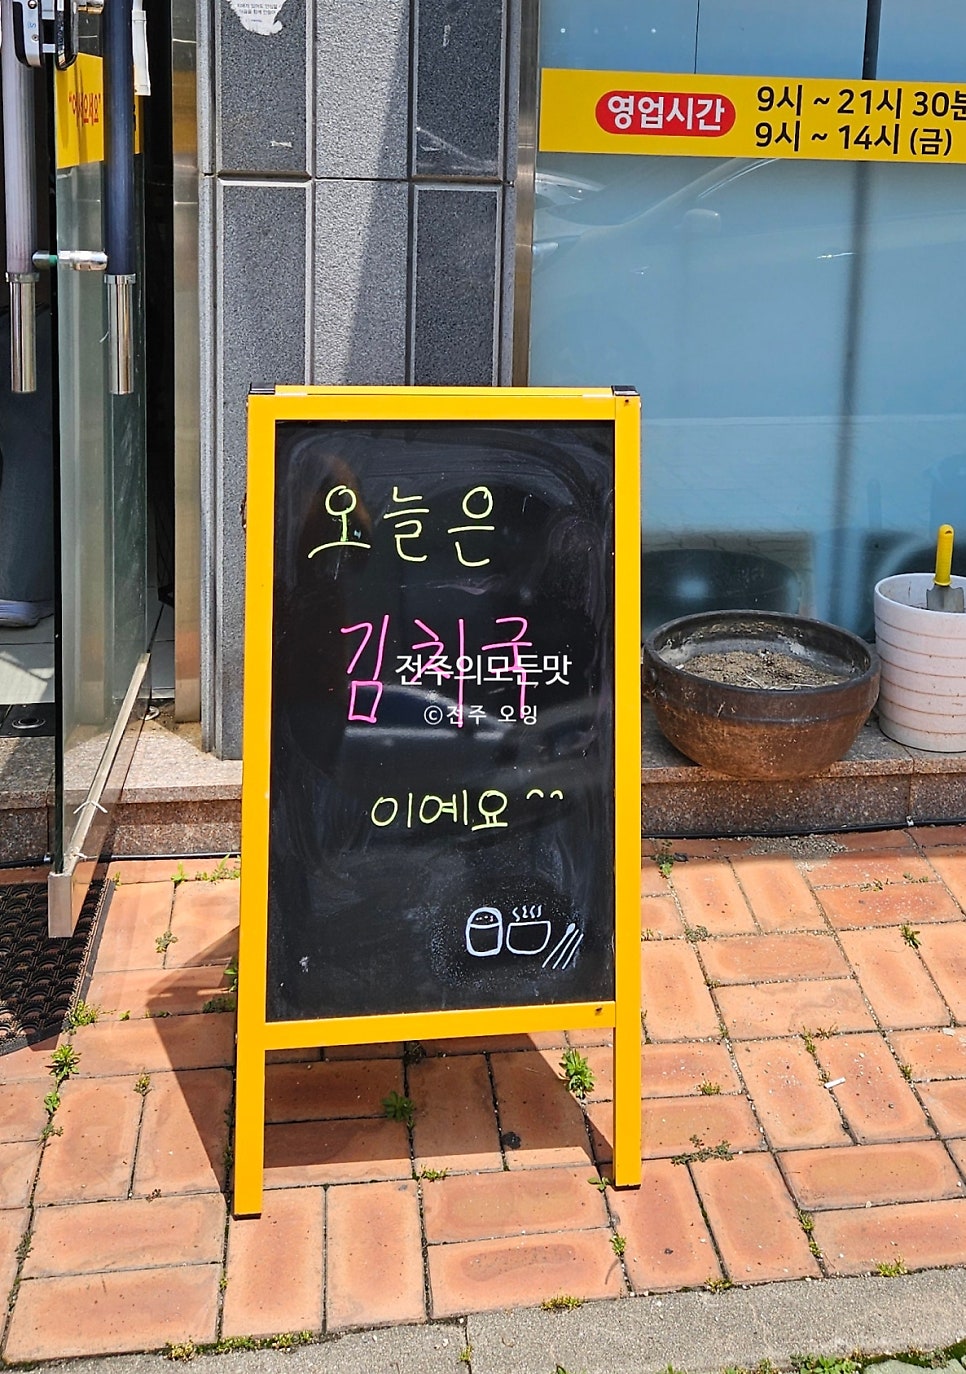 영업시간
9시 ~ 21시 30분
9시 ~ 14시 (금)
오늘은
김치국
전주의모든맛
©전주 오잉
이예요 ^^